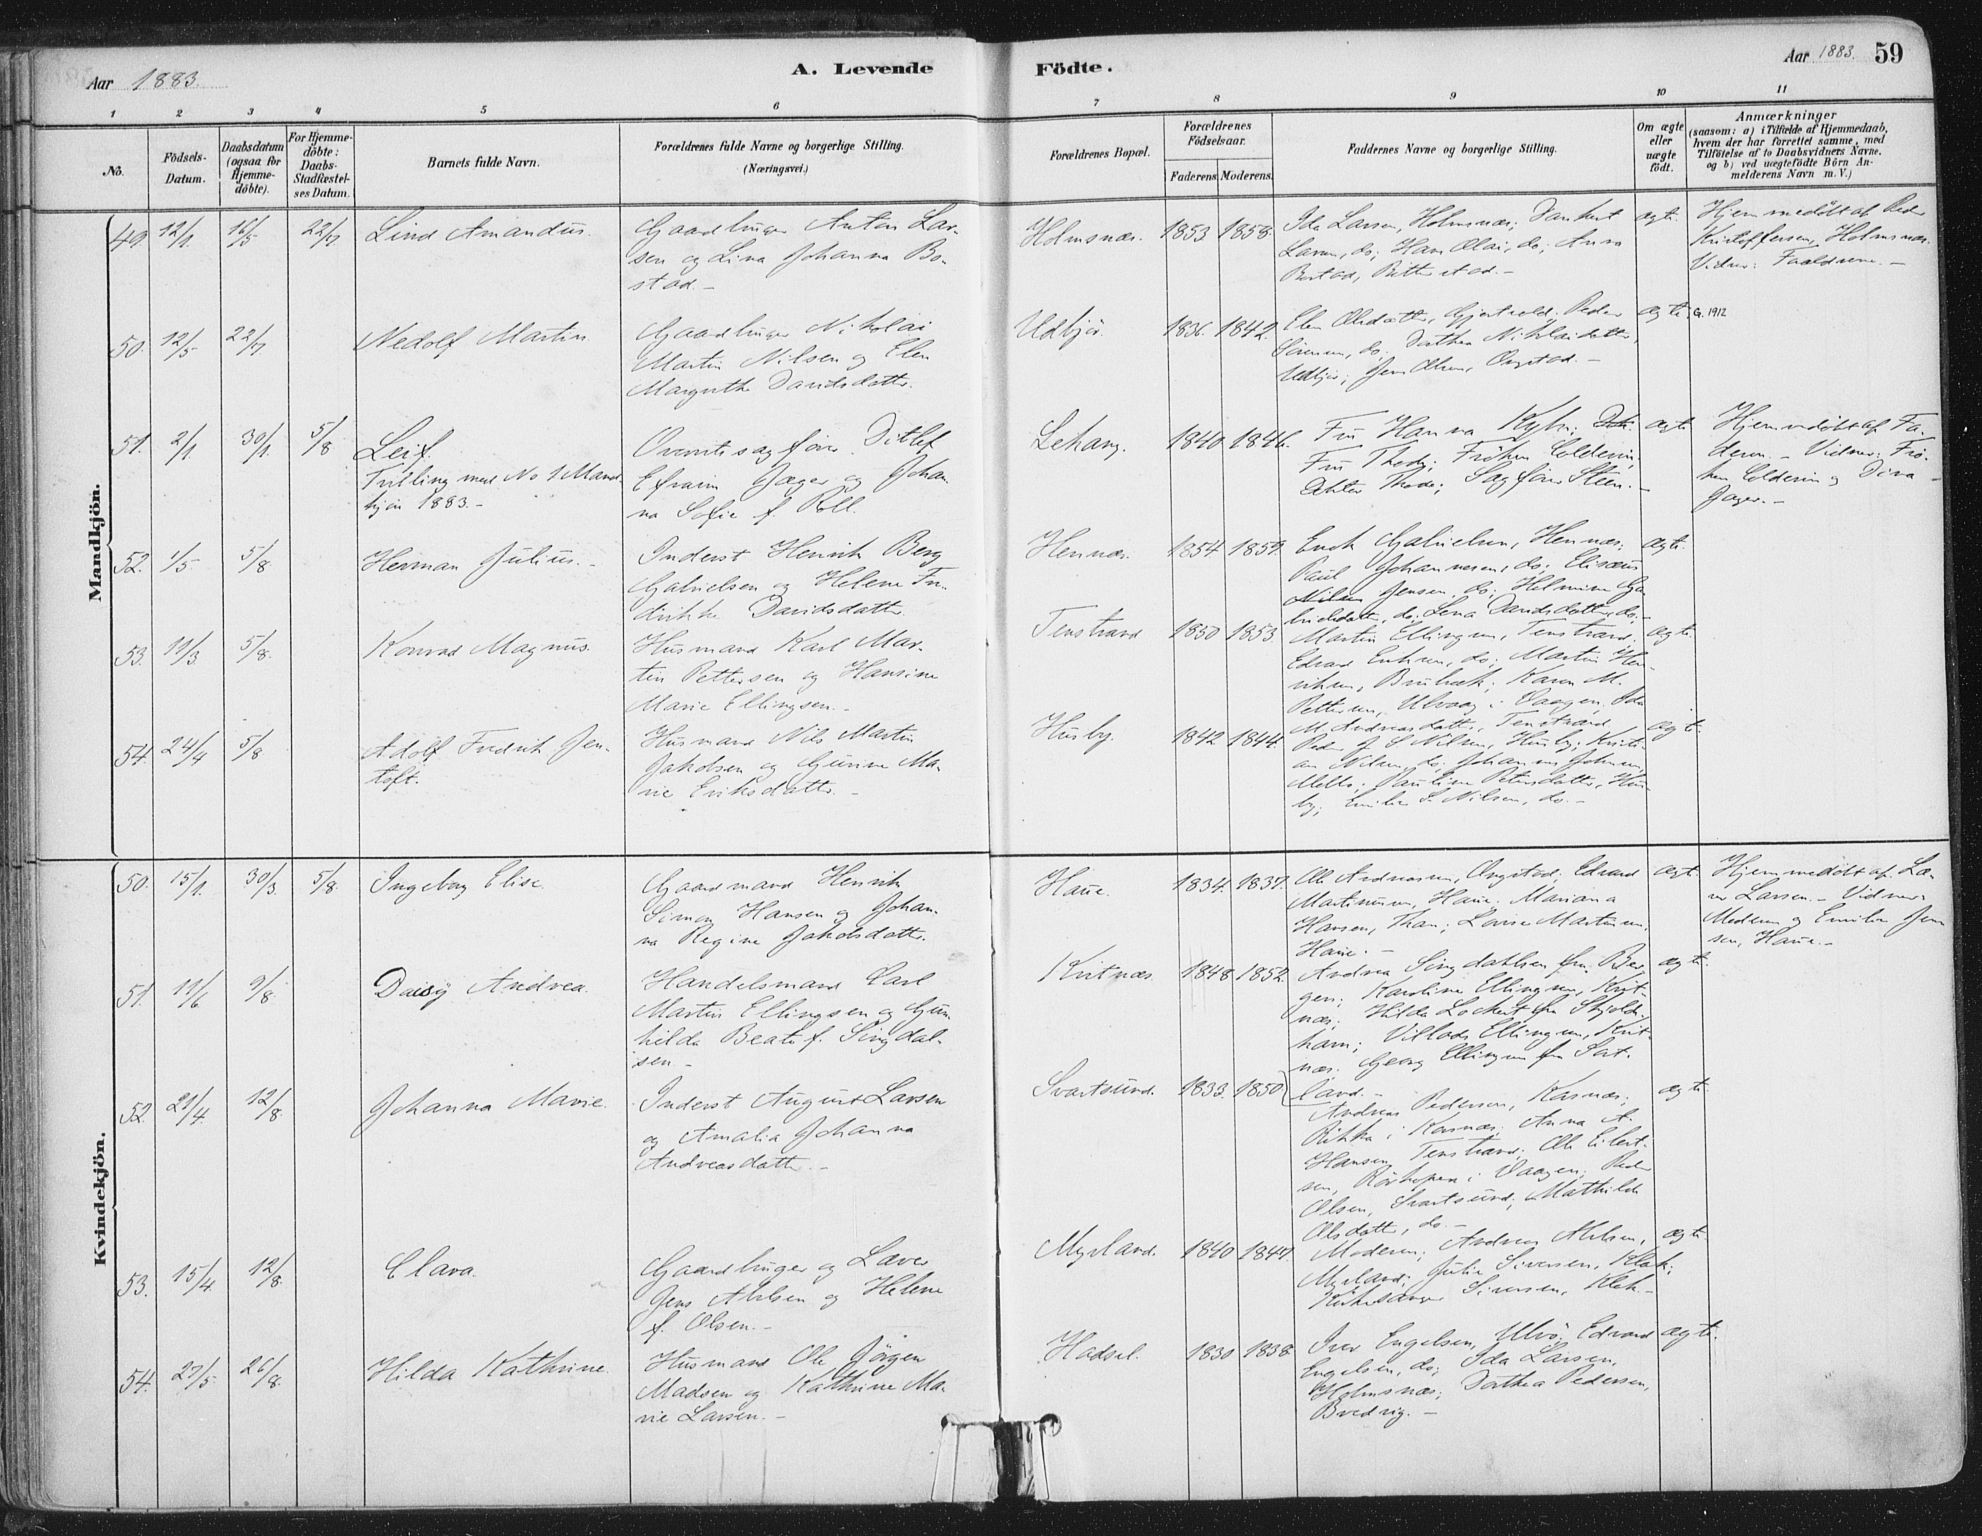 Aar 1883.
A. Levende
Födte.
Aar 1883. 59
1 2 3 4 5 6 7 8 9 10 11
No.
Födsels-
Datum.
Daabsdatum
(ogsaa for
Hjemme-
döbte).
For Hjemme-
döbte:
Daabs-
Stadfæstel-
ses Datum.
Barnets fulde Navn.
Forældrenes fulde Navne og borgerlige Stilling.
(Næringsvei.)
Forældrenes Bopæl.
Forældrenes
Födselsaar.
Faderens. Moderens.
Faddernes Navne og borgerlige Stilling.
Om ægte
eller
uægte
födt.
Anmærkninger
(saasom: a) i Tilfælde af Hjemmedaab,
hvem der har forrettet samme, med
Tilföielse af to Daabsvidners Navne,
og b) ved uægtefödte Börn An-
melderens Navn m. V.)
Mandkjön.
49. 12/1 16/5 22/7
Lind Amandus.
Gaardbruger Anton Lar-
sen og Lina Johanna Bo-
stad. -
Holmsnæs. 1853 1858.
Ida Larsen, Holmsnæs; Dankert
Larsen, do; Hans Olai, do; Anna
Bostad,
ægte.
Hjemmedöbt af Peder
Kristoffersen, Holmsnæs.
Vidner: Forældrene. -
50. 12/5 22/7
Nedolf Martin
Gaardbruger Nikolai
Martin Nilsen og Elen
Margrethe Davidsdatter.
Udbjör. 1836. 1842.
Elen Olsdatter, Peder
do; Dorthea Nikolaidatter,
Udbjör; Jens Olsen, Ongstad. -
ægte. G. 1912
51. 2/1 30/1 5/8
Leif.
Trilling med No 1 Mand-
kjön 1883. -
Overretssagförer Ditlef
Efraim Jæger og Johan-
na Sofie f. Roll.
Lekang. 1840. 1846.
Fru Hanna
Fru Thode; Fröken Coldevin;
Thode; Sagförer Steen. -
ægte.
Hjemmedöbt af Fa-
deren. - Vidner: Frö-
ken Coldevin og Diva
Jæger. -
52. 1/5 5/8
Herman Julius. -
Inderst Henrik Berg
Gabrielsen og Helene Fre-
drikke Davidsdatter.
Hennæs. 1854 1859.
Erik Gabrielsen, Hennæs;
Paul Johannesen, do; Elisæus
Jensen, do; Helmine Ga-
brielsdatter, do; Lena Davidsdatter, do. -
ægte.
53. 19/3 5/8
Konrad Magnus.
Husmand Karl Mar-
tin Pettersen og Hansine
Marie Ellingsen. -
Tenstrand 1850 1853.
Martin Ellingsen, Tenstrand;
Edvard Eriksen, do; Martin Hen-
riksen, Karen M.
Pettersen, Ulvaag i Vaagen; Ida
M. Andreasdatter, Tenstrand
ægte.
54. 24/4 5/8
Adolf Fredrik Jen-
toft.
Husmand Nils Martin
Jakobsen og Gurine Ma-
rie Eriksdatter. -
Husby. 1842 1844.
Peder Nilsen, Husby; Kristi-
an Nilsen, do; Johannes Johnsen,
Melbo; Pauline Petersdatter, Hus-
by; Emilie S. Nilsen, do. -
ægte.
Kvindekjön.
50. 15/1. 30/3. 5/8.
Ingeborg Elise
Gaardmand Henrik
Simon Hansen og Johan-
na Regine Jakobsdatter.
Haue. 1834. 1837.
Ole Andreassen, Ongstad; Edvard
Martinussen, Haue; Mariana
Hansen, Than; Lovise Martinussen,
Haue. -
ægte.
Hjemmedöbt af Læ-
rer Larsen. - Vidner:
Moderen og Emilie Jen-
sen, Haue. -
51. 19/6 9/8.
Daisy Andrea.
Handelsmand Carl
Martin Ellingsen og Gun-
hilda Beate f. Singdal-
sen -
Kvitnæs. 1848 1852.
Andrea Singdahlsen fra Ber-
gen; Karoline Ellingsen, Kvit-
næs; Hilda Lockert fra Skjold-
ham; Villads Ellingsen, Kvit-
næs. Georg Ellingsen fra Sort-
land. -
ægte.
52. 21/4. 12/8.
Johanna Marie.
Inderst August Larsen
og Amalia Johanna
Andreasdatter. -
Svartsund. 1833. 1850
Andreas Pedersen, Kasnæs;
Rikka i Kasnæs; Anna A.
Hansen, Tenstrand; Ole Eilert-
sen, Rörhopen i Vaagen; Peder
Olsen, Svartsund; Mathilde
Olsdatter, do. -
ægte.
53. 15/4. 12/8.
Clara.
Gaardbruger og Lærer
Jens Ahlsen og Helene
f. Olsen. -
Myrland. 1840 1847.
Moderen; Andreas Ahlsen,
Myrland; Julie Siversen, Klak;
Kirkesanger Siversen, Klak. -
ægte.
54. 27/5 26/8.
Hilda Kathrine.
Husmand Ole Jörgen
Madsen og Kathrine Ma-
rie Larsen. -
Hadsel. 1830 1838.
Iver Engelsen, Ulvö; Edvard
Engelsen, do; Ida Larsen,
Holmsnæs; Dorthea Pedersen,
Bredvig. -
ægte.